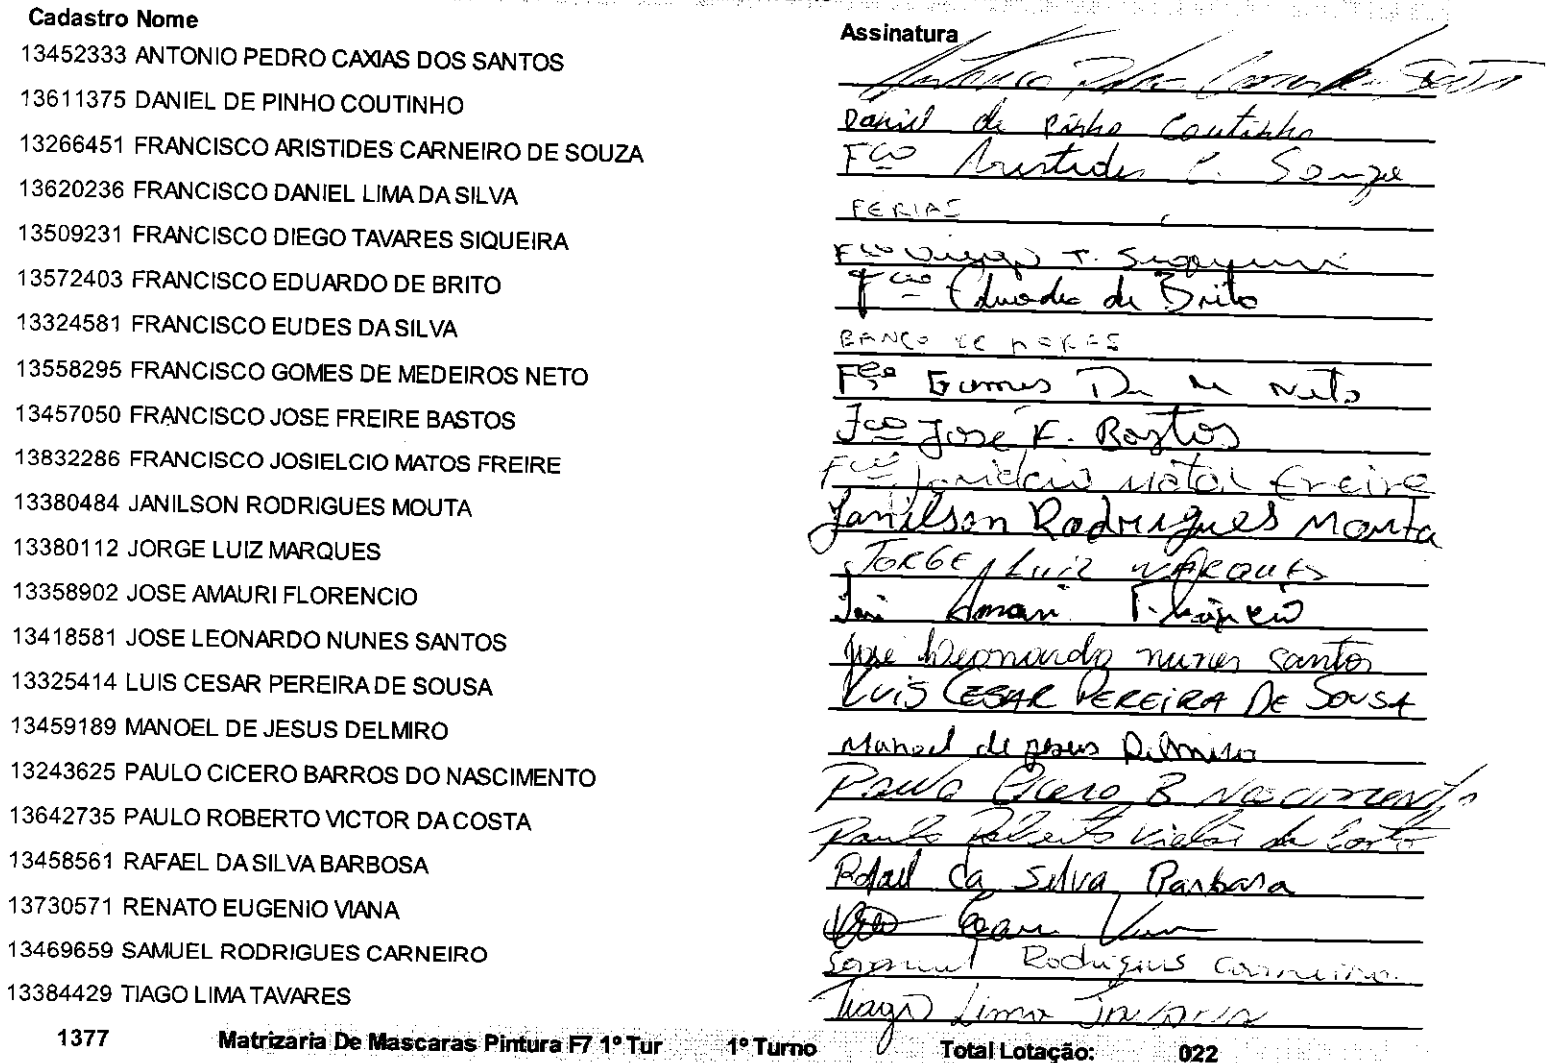 Cadastro Nome Assinatura
13452333 ANTONIO PEDRO CAXIAS DOS SANTOS Antonio Pedro
13611375 DANIEL DE PINHO COUTINHO Daniel de Pinho Coutinho
13266451 FRANCISCO ARISTIDES CARNEIRO DE SOUZA Fco Aristides C. Souza
13620236 FRANCISCO DANIEL LIMA DA SILVA FERIAS
13509231 FRANCISCO DIEGO TAVARES SIQUEIRA Fco Diego T. Siqueira
13572403 FRANCISCO EDUARDO DE BRITO Fco Eduardo de Brito
13324581 FRANCISCO EUDES DA SILVA BANCO DE HORAS
13558295 FRANCISCO GOMES DE MEDEIROS NETO Fco Gomes De M Neto
13457050 FRANCISCO JOSE FREIRE BASTOS Fco José F. Bastos
13832286 FRANCISCO JOSIELCIO MATOS FREIRE Fco Freire
13380484 JANILSON RODRIGUES MOUTA Janilson Rodrigues Mouta
13380112 JORGE LUIZ MARQUES JORGE Luiz MARQUES
13358902 JOSE AMAURI FLORENCIO José Amauri
13418581 JOSE LEONARDO NUNES SANTOS José Leonardo nunes santos
13325414 LUIS CESAR PEREIRA DE SOUSA LUIS CESAR PEREIRA DE SOUSA
13459189 MANOEL DE JESUS DELMIRO Manoel de jesus Delmiro
13243625 PAULO CICERO BARROS DO NASCIMENTO Paulo Cicero B Nascimento
13642735 PAULO ROBERTO VICTOR DA COSTA Paulo Roberto Victor da Costa
13458561 RAFAEL DA SILVA BARBOSA Rafael da Silva Barbosa
13730571 RENATO EUGENIO VIANA
13469659 SAMUEL RODRIGUES CARNEIRO Samuel Rodrigues carneiro
13384429 TIAGO LIMA TAVARES Tiago Lima Tavares
1377 Matrizaria De Mascaras Pintura F7 1º Tur 1º Turno Total Lotação: 022